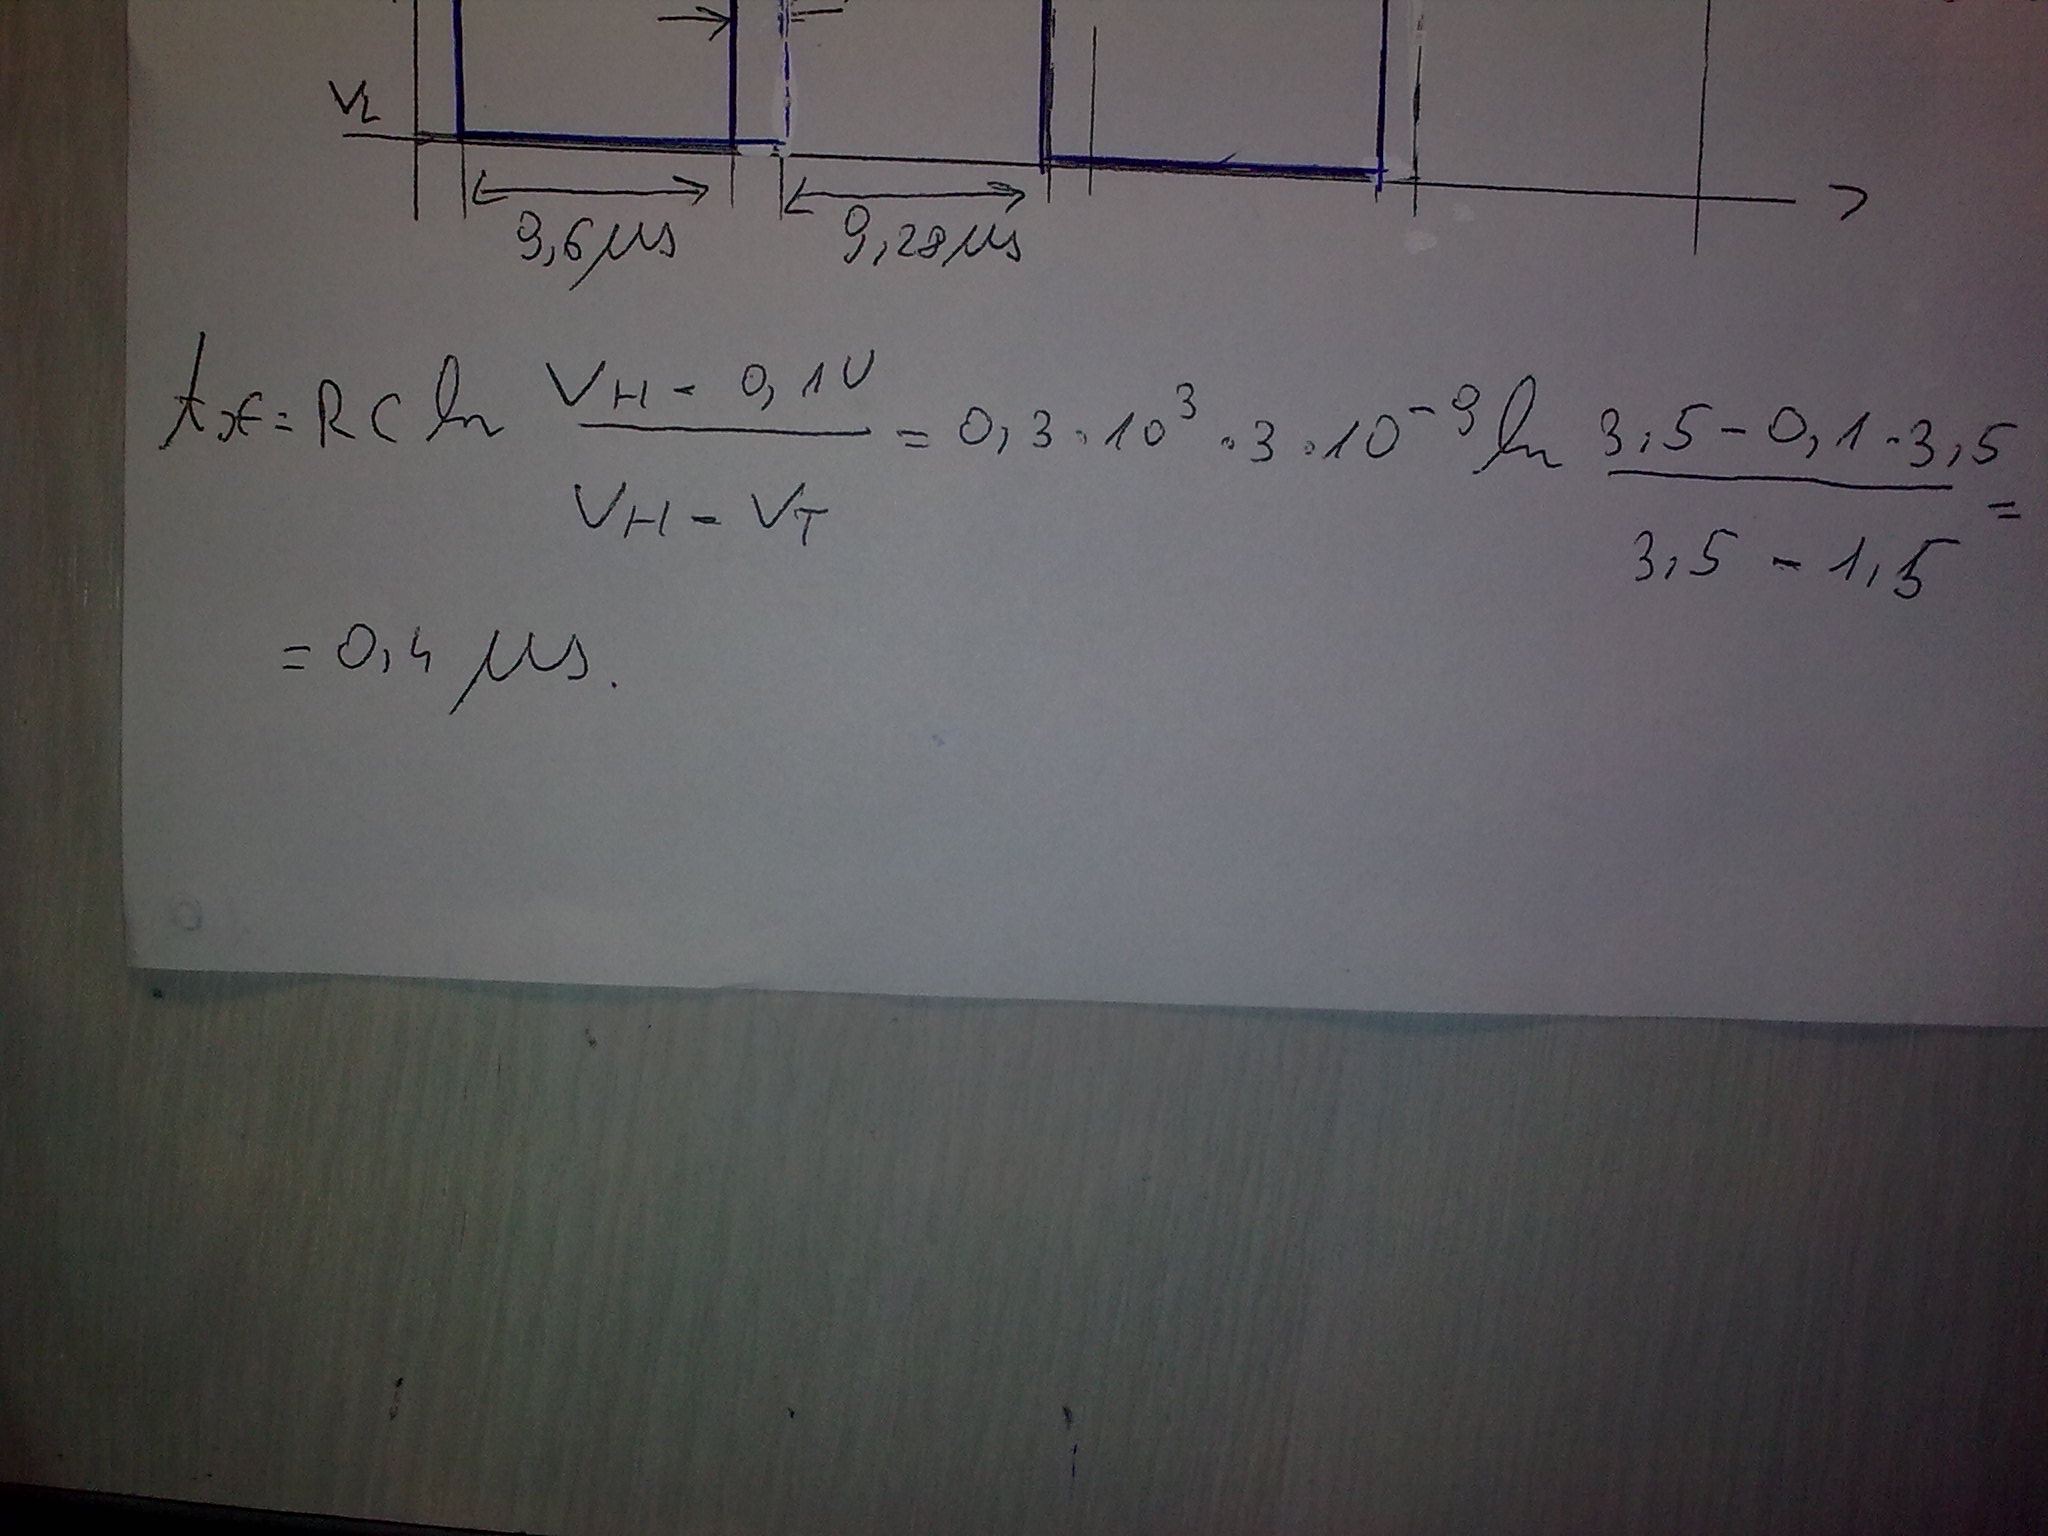 VL
9,6 μs 9,28 μs
tx = RC ln (VH - 0,1U)/(VH - VT) = 0,3·10³·3·10⁻⁹ ln (3,5 - 0,1·3,5)/(3,5 - 1,5) =
= 0,4 μs.